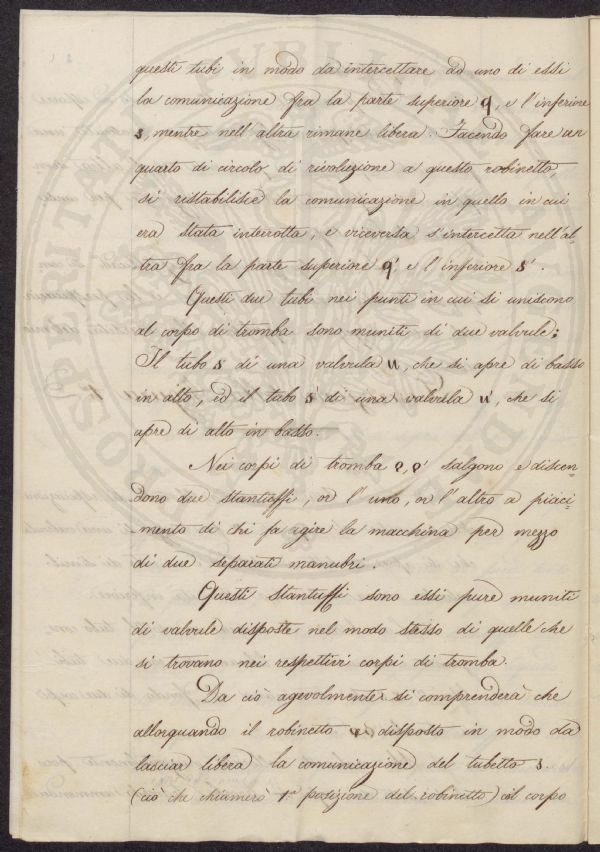 questi tubi in modo da intercettare ad uno di essi
la comunicazione fra la parte superiore q, e l'inferiore
s, mentre nell'altra rimane libera. Facendo fare un
quarto di circolo di rivoluzione a questo robinetto,
si ristabilisce la comunicazione in quello in cui
era stata interrotta, e viceversa s'intercetta nell'al
tra fra la parte superiore q' e l'inferiore s'.
Questi due tubi nei punti in cui si uniscono
al corpo di tromba sono muniti di due valvule:
Il tubo s di una valvula u, che si apre di basso
in alto, ed il tubo s' di una valvula u', che si
apre di alto in basso.
Nei corpi di tromba p, p' salgono e discen=
dono due stantuffi, or l'uno, or l'altro a piaci=
mento di chi fa agire la macchina per mezzo
di due separati manubri.
Questi stantuffi sono essi pure muniti
di valvule disposte nel modo stesso di quelle che
si trovano nei respettivi corpi di tromba.
Da ciò agevolmente si comprenderà che
allorquando il robinetto disposto in modo da
lasciar libera la comunicazione del tubetto s.
(ciò che chiamerò 1ª posizione del robinetto) col corpo